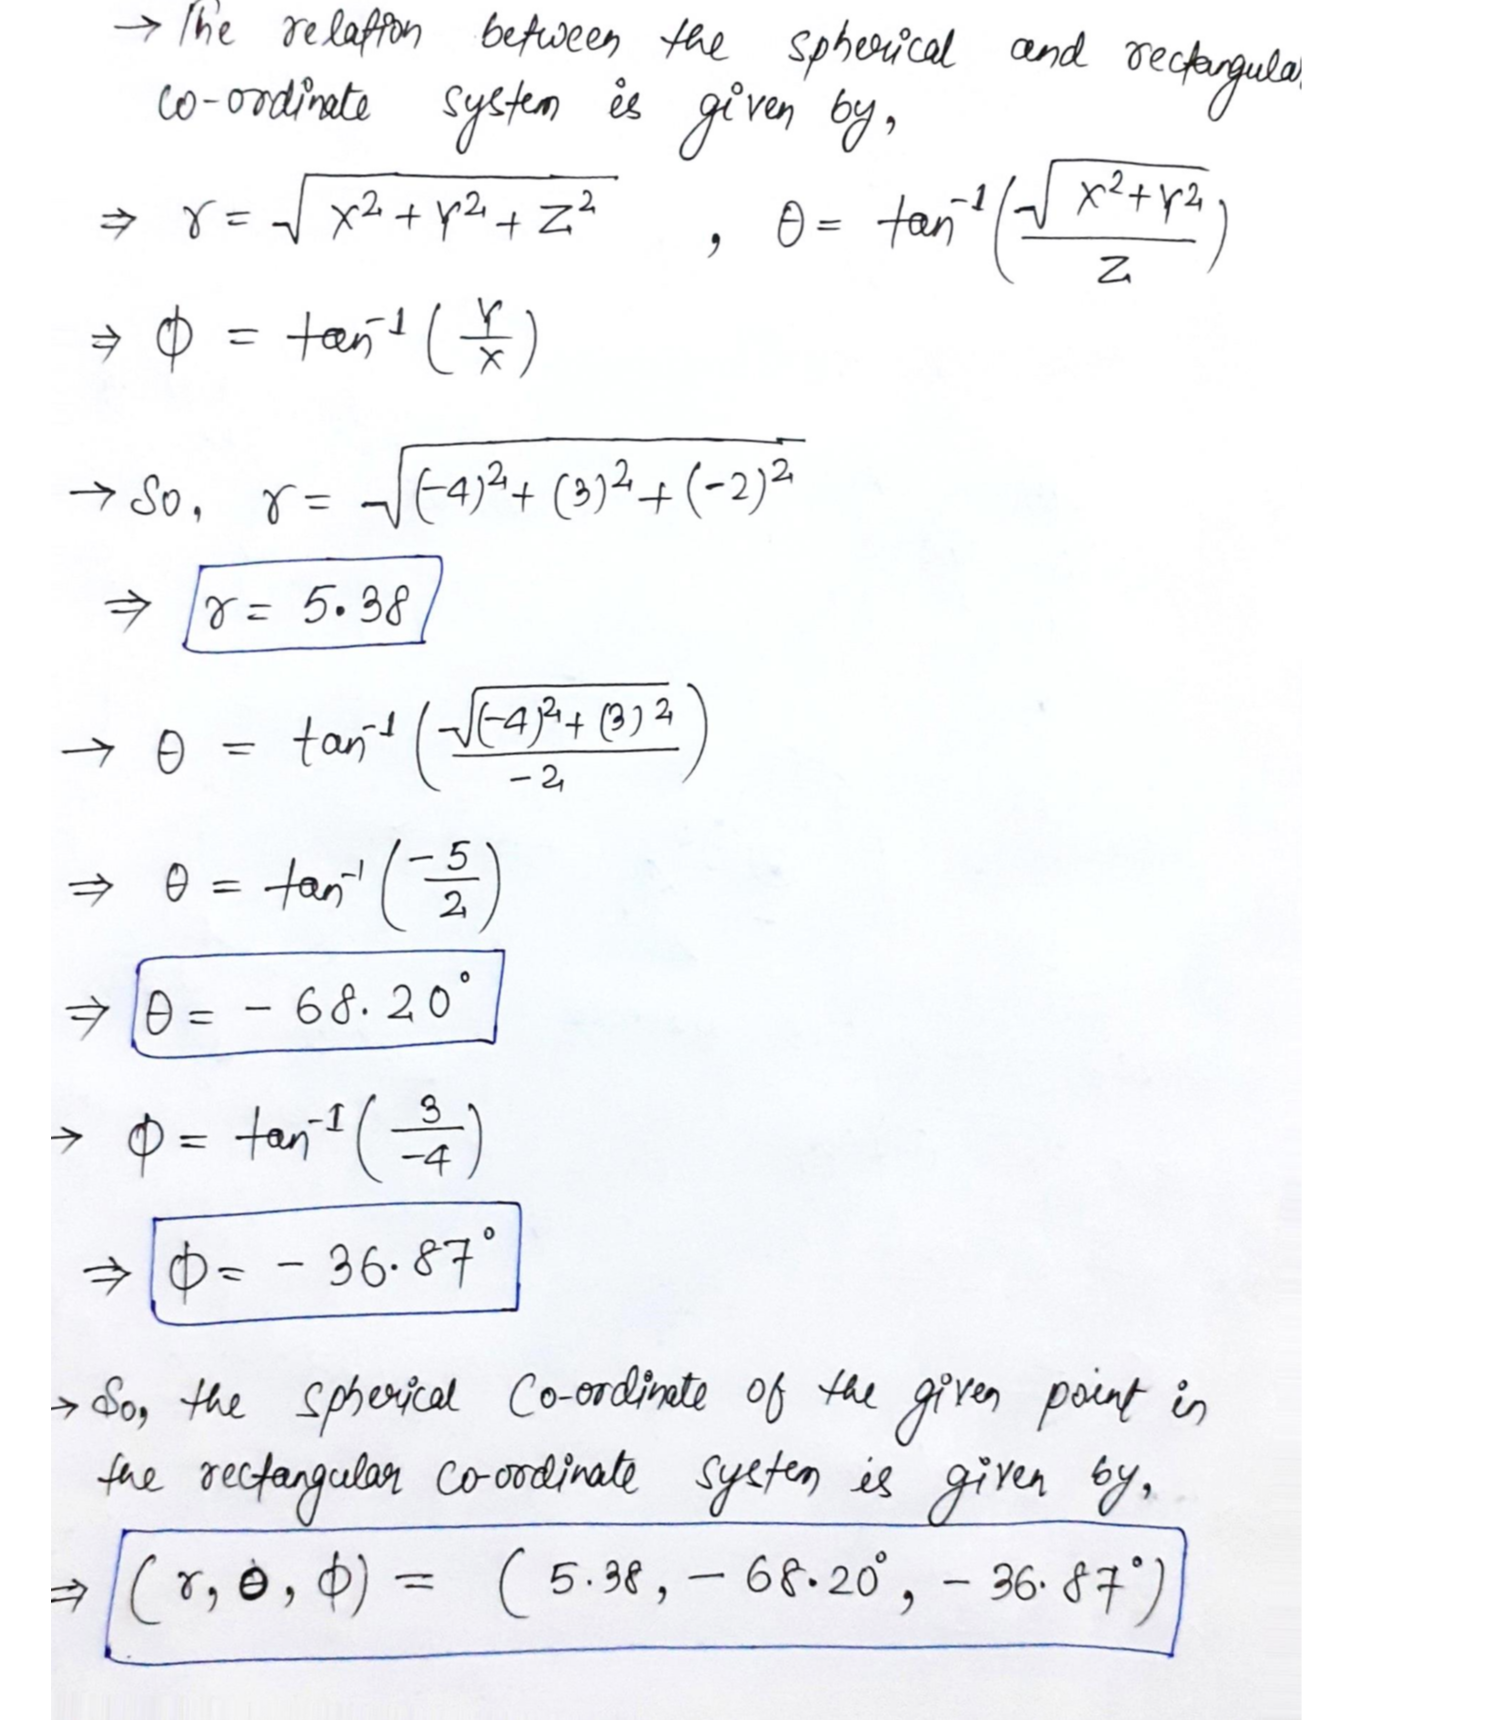 → The relation between the spherical and rectangula
co-ordinate system is given by,
⇒ r = √(x² + y² + z²) , θ = tan⁻¹(√(x² + y²) / z)
⇒ ϕ = tan⁻¹(y/x)
→ So, r = √((-4)² + (3)² + (-2)²)
⇒ r = 5.38
→ θ = tan⁻¹(√((-4)² + (3)²) / -2)
⇒ θ = tan⁻¹(-5/2)
⇒ θ = - 68.20°
→ ϕ = tan⁻¹(3/-4)
⇒ ϕ = - 36.87°
→ So, the spherical Co-ordinate of the given point in
the rectangular co-ordinate system is given by,
⇒ (r, θ, ϕ) = (5.38, - 68.20°, - 36.87°)